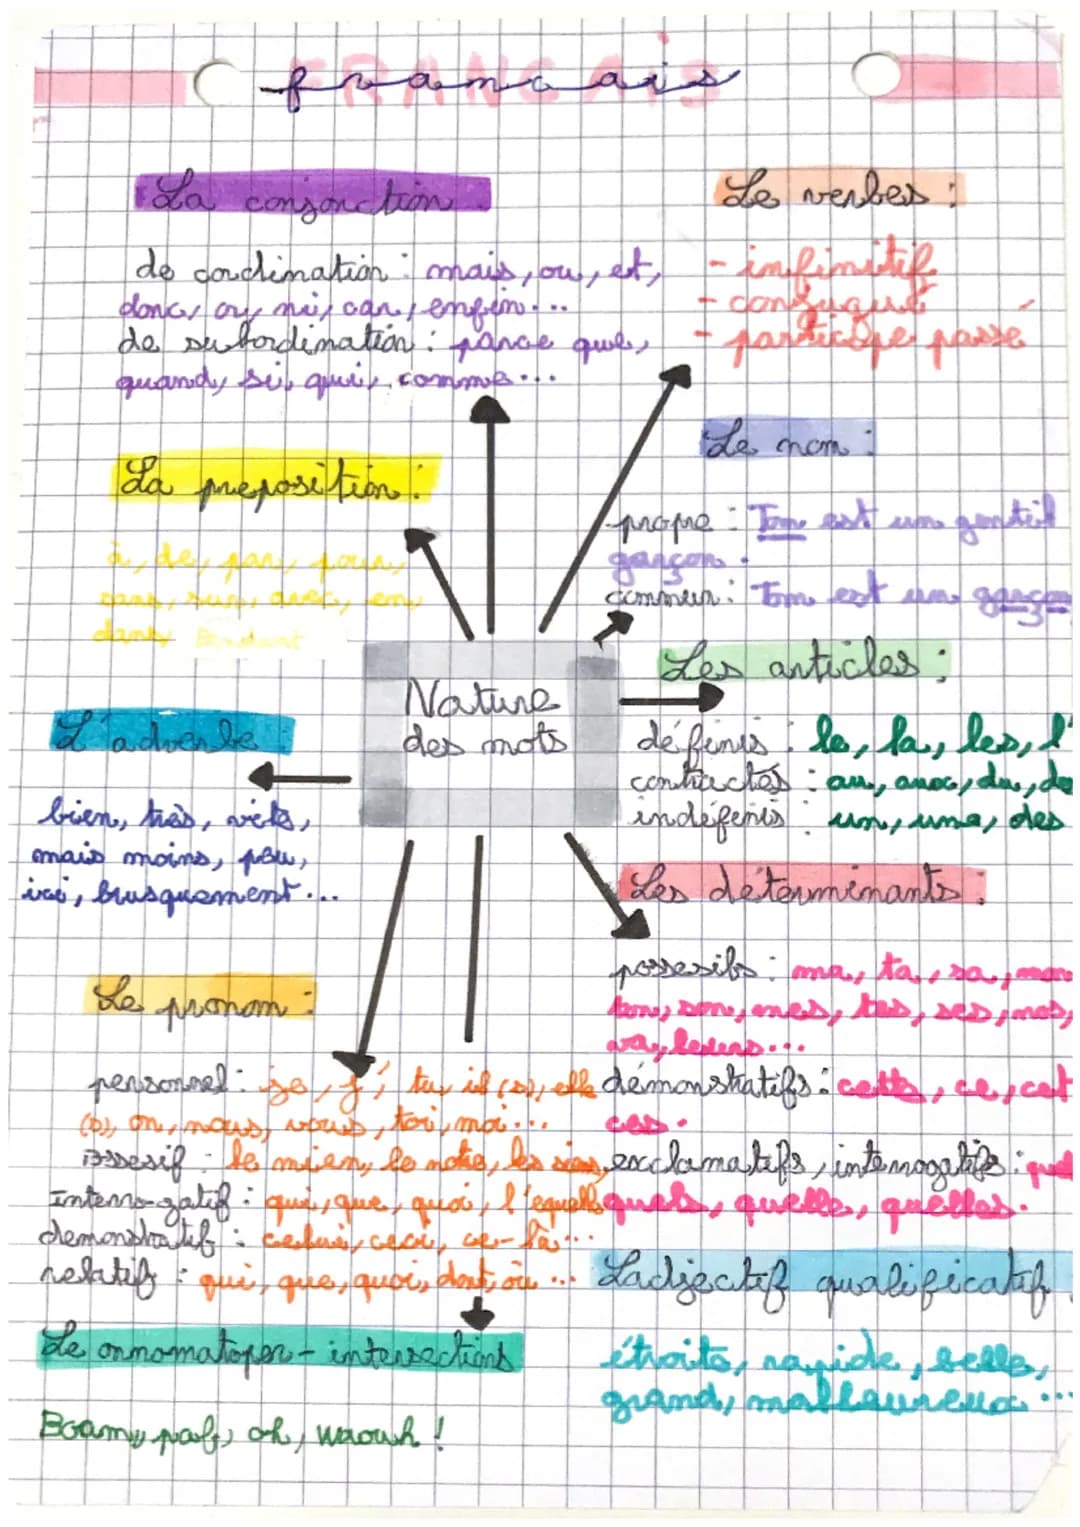 FRANCAIS
francais
La conjonction
de cordination : mais, ou, et,
donc, or, ni, car, enfin...
de subordination : parce que,
quand, si, qui, comme...
Le verbes :
- infinitif
- conjugué
- participe passé
La preposition :
à, de, par, pour,
sans, sur, avec, en,
dans,
Le nom :
propre : Tom est un gentil
garçon.
commun : Tom est un garçon
Nature
des mots
Les articles :
définis : le, la, les, l'
contractés : au, aux, du, de
indéfinis : un, une, des
L'adverbe
bien, très, vite,
mais moins, peu,
ici, brusquement...
Les déterminants :
possesifs : ma, ta, sa, mon
ton, son, mes, tes, ses, nos,
leurs...
démonstratifs : cette, ce, cet
ces.
exclamatifs, interrogatifs : quel
quels, quelle, quelles.
Le pronom :
personnel : je, j', tu, il (s), elle
(s), on, nous, vous, toi, moi...
ossesif : le mien, le notre, les siens,
Interro-gatif : qui, que, quoi, l'equelle
demonstratif : celui, ceci, ce-là...
relatif : qui, que, quoi, dont, où ...
L'adjectif qualificatif
étroite, rapide, belle,
grand, malheureux ...
Le onnomatoper - intersections
Boam, paf, oh, waouh !